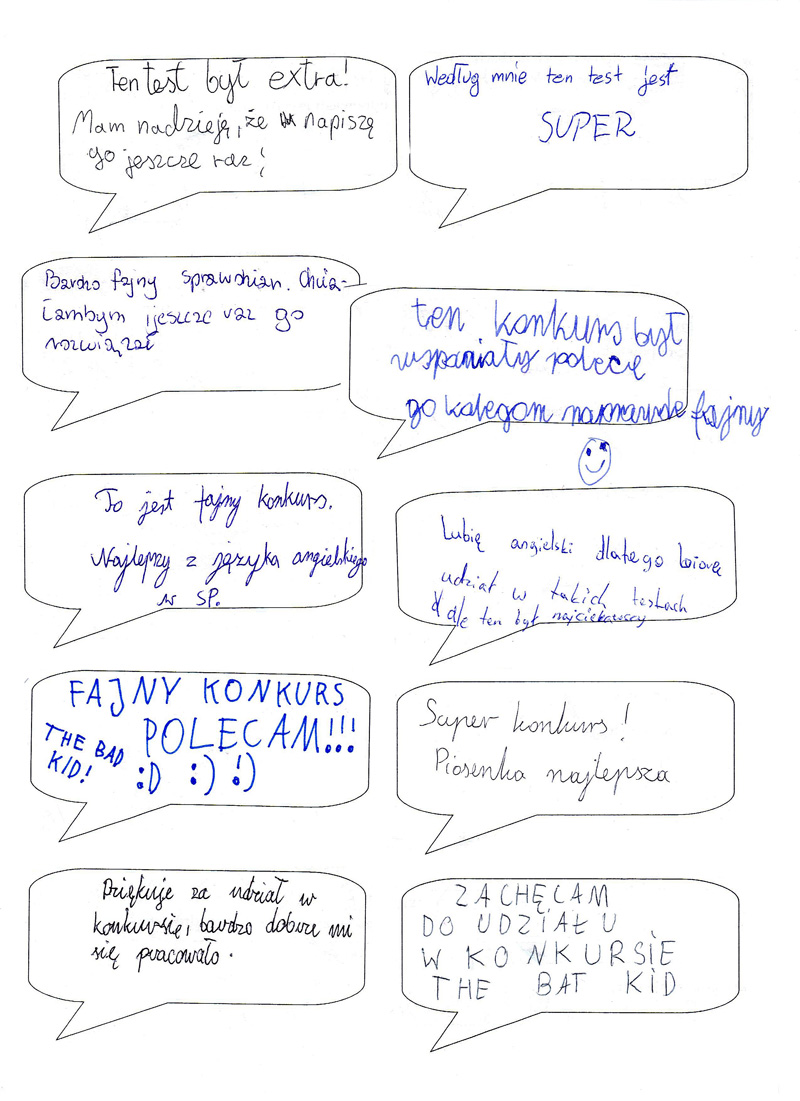 Ten test był extra!
Mam nadzieję, że napiszę
go jeszcze raz!
Według mnie ten test jest
SUPER
Bardzo fajny sprawdzian. Chcia-
łambym jeszcze raz go
rozwiązać
ten konkurs był
wspaniały polecę
go kolegom naprawdę fajny
To jest fajny konkurs.
Najlepszy z języka angielskiego
w SP.
Lubię angielski dlatego biorę
udział w takich testach
ale ten był najciekawszy
FAJNY KONKURS
POLECAM!!!
THE BAD
KID!
:D :) :)
Super konkurs!
Piosenka najlepsza
Dziękuje za udział w
konkursię, bardzo dobrze mi
się pracowało.
ZACHĘCAM
DO UDZIAŁU
W KONKURSIE
THE BAT KID